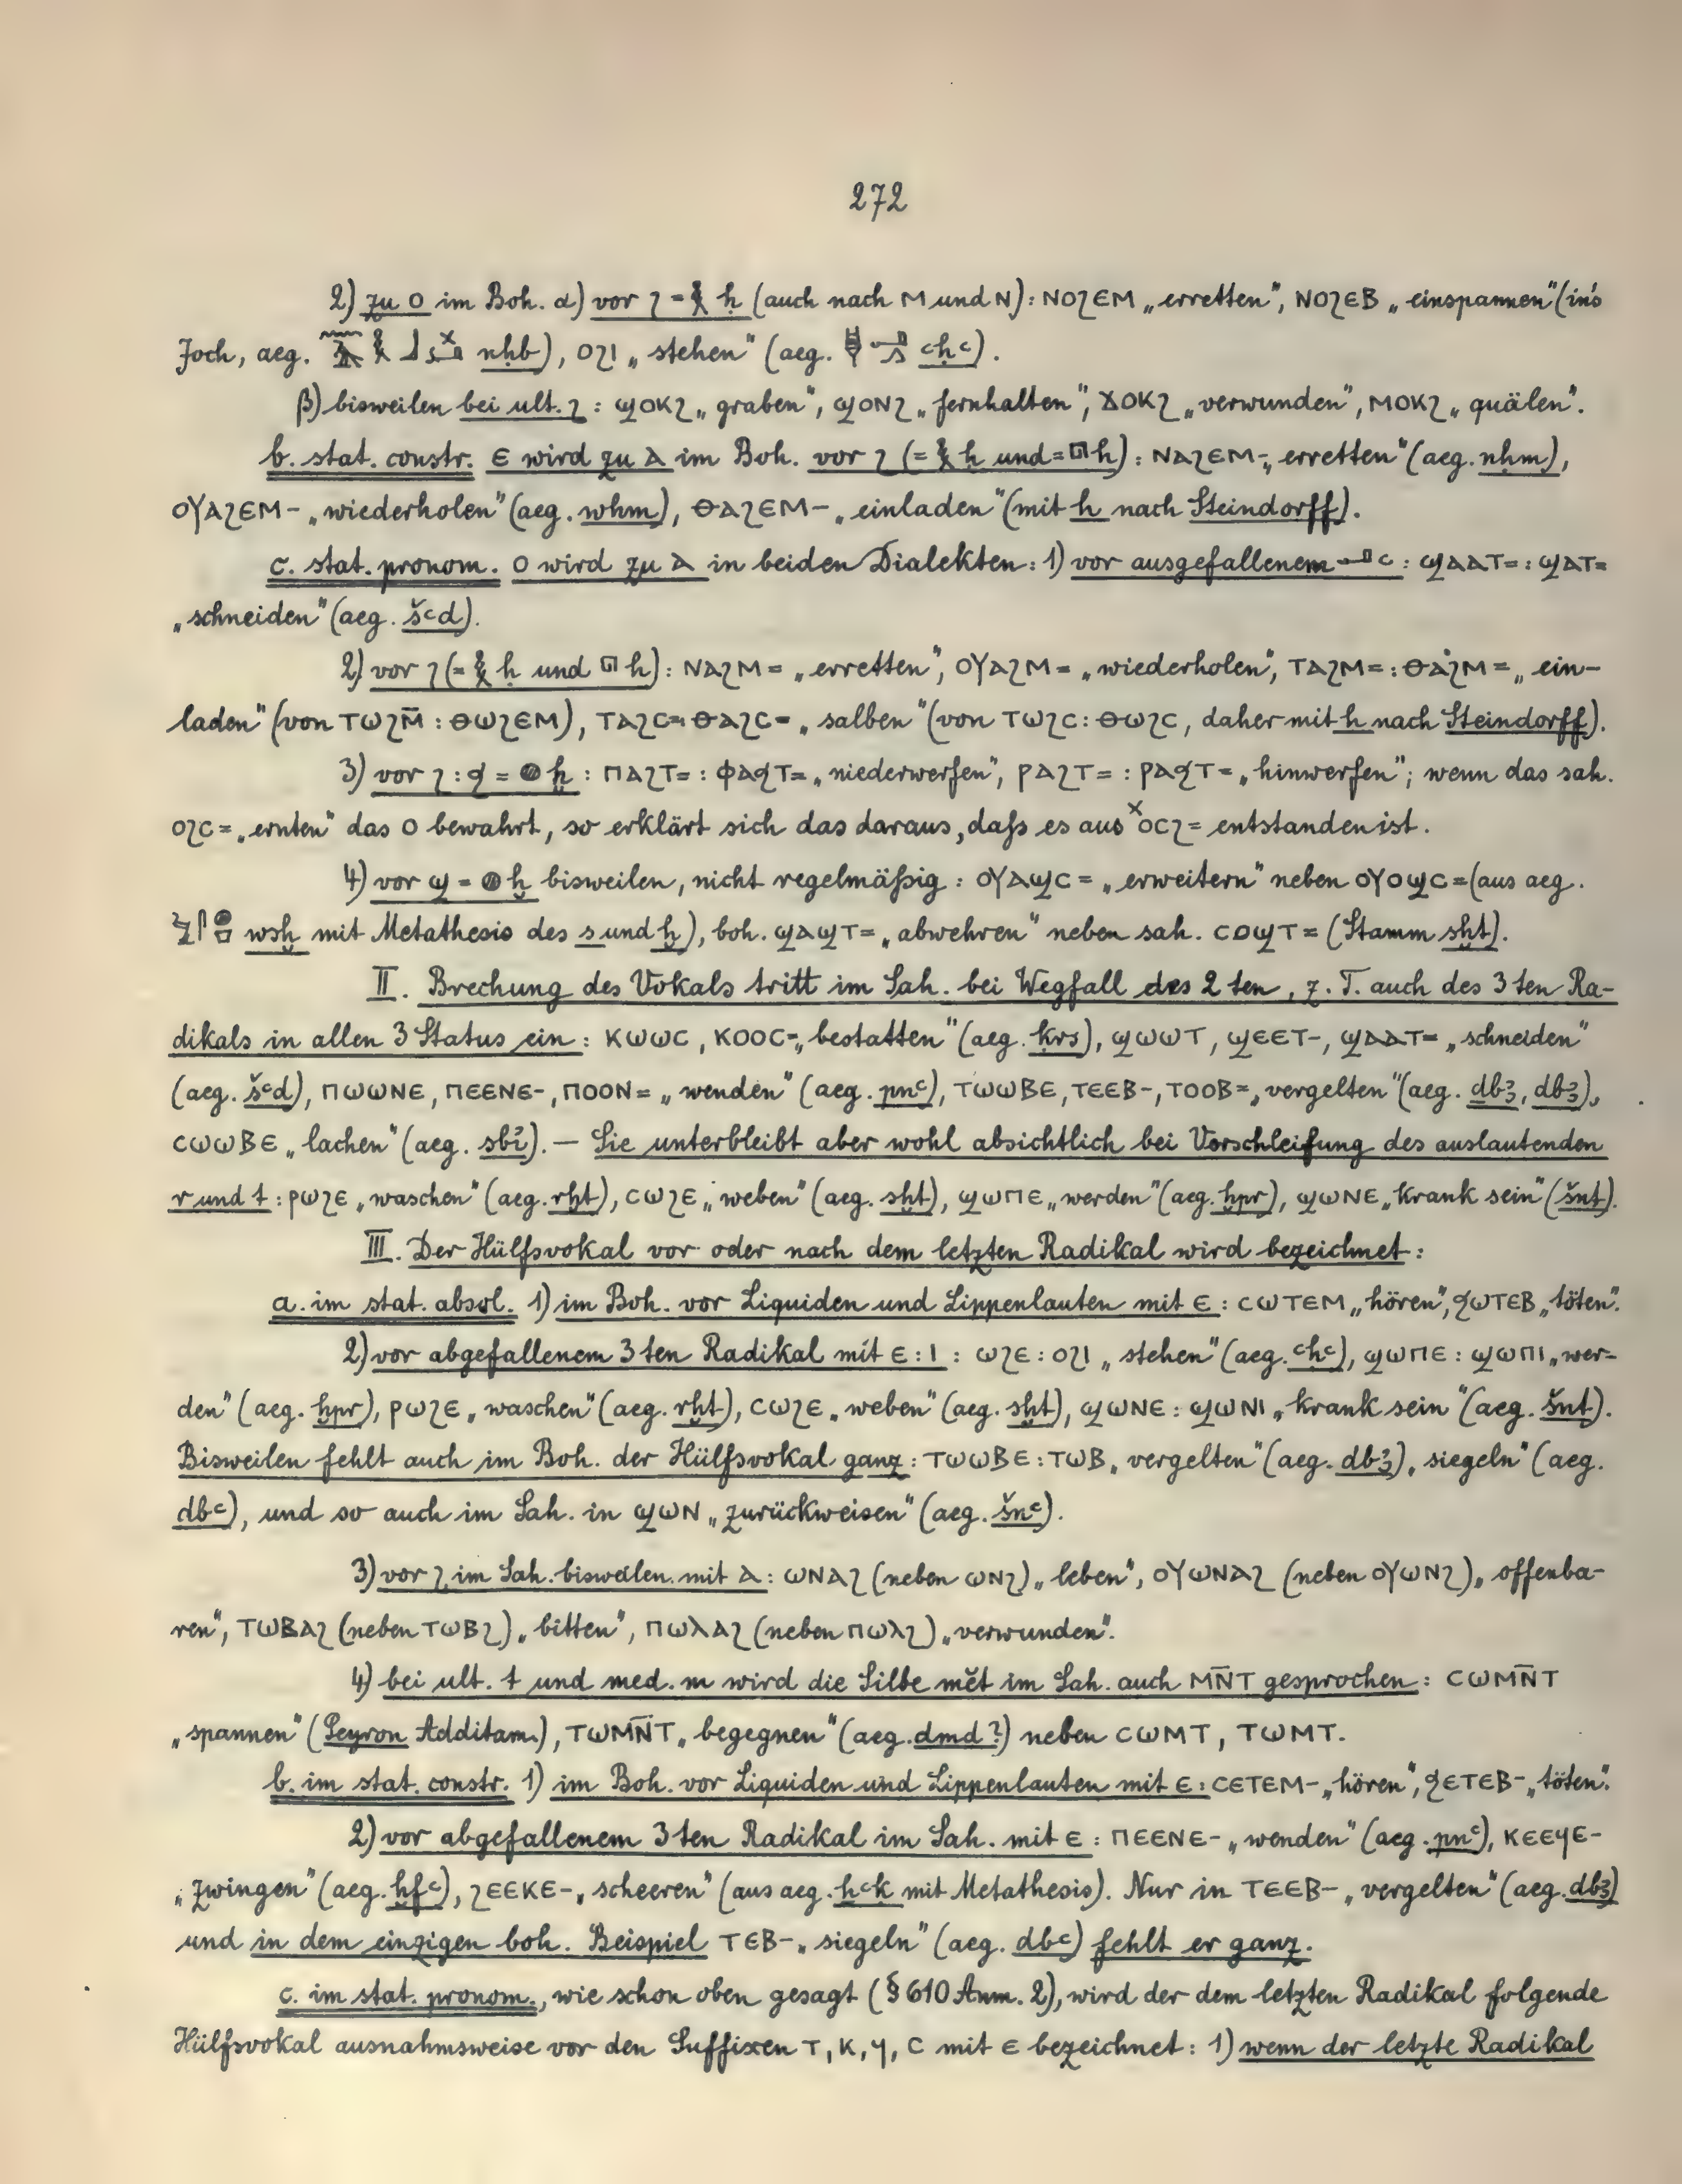 272
2) zu ⲟ im Boh. α) vor ϩ = 𓎛 ḥ (auch nach ⲙ und ⲛ): ⲛⲟϩⲉⲙ „erretten“, ⲛⲟϩⲉⲃ „einspannen“ (in's
Joch, aeg. nḥb), ⲟϩⲓ „stehen“ (aeg. ꜥḥꜥ).
β) bisweilen bei ult. ϩ: ϣⲟⲕϩ „graben“, ϣⲟⲛϩ „fernhalten“, ϫⲟⲕϩ „verwunden“, ⲙⲟⲕϩ „quälen“.
b. stat. constr. ⲉ wird zu ⲁ im Boh. vor ϩ (= 𓎛 ḥ und = 𓉔 h): ⲛⲁϩⲉⲙ- „erretten“ (aeg. nḥm),
ⲟⲩⲁϩⲉⲙ- „wiederholen“ (aeg. wḥm), ⲑⲁϩⲉⲙ- „einladen“ (mit h nach Steindorff).
c. stat. pronom. ⲟ wird zu ⲁ in beiden Dialekten: 1) vor ausgefallenem 𓂝 ꜥ: ϣⲁⲁⲧ= : ϣⲁⲧ=
„schneiden“ (aeg. šꜥd).
2) vor ϩ (= 𓎛 ḥ und 𓉔 h): ⲛⲁϩⲙ= „erretten“, ⲟⲩⲁϩⲙ= „wiederholen“, ⲧⲁϩⲙ= : ⲑⲁϩⲙ= „ein-
laden“ (von ⲧⲱϩⲙ̄ : ⲑⲱϩⲉⲙ), ⲧⲁϩⲥ= : ⲑⲁϩⲥ= „salben“ (von ⲧⲱϩⲥ : ⲑⲱϩⲥ, daher mit h nach Steindorff).
3) vor ϩ : ϧ = 𓐍 ḫ: ⲡⲁϩⲧ= : ⲫⲁϧⲧ= „niederwerfen“, ⲣⲁϩⲧ= : ⲣⲁϧⲧ= „hinwerfen“; wenn das sah.
ⲟϩⲥ= „ernten“ das ⲟ bewahrt, so erklärt sich das daraus, daß es aus ˣⲟⲥϩ= entstanden ist.
4) vor ϣ = 𓐍 ḫ bisweilen, nicht regelmäßig: ⲟⲩⲁϣⲥ= „erweitern“ neben ⲟⲩⲟϣⲥ= (aus aeg.
wsḫ mit Metathesis des s und ḫ), boh. ϣⲁϣⲧ= „abwehren“ neben sah. ⲥⲟϣⲧ= (Stamm sḫt).
II. Brechung des Vokals tritt im Sah. bei Wegfall des 2ten, z. T. auch des 3ten Ra-
dikals in allen 3 Status ein: ⲕⲱⲱⲥ, ⲕⲟⲟⲥ= „bestatten“ (aeg. ḳrs), ϣⲱⲱⲧ, ϣⲉⲉⲧ-, ϣⲁⲁⲧ= „schneiden“
(aeg. šꜥd), ⲡⲱⲱⲛⲉ, ⲡⲉⲉⲛⲉ-, ⲡⲟⲟⲛ= „wenden“ (aeg. pnꜥ), ⲧⲱⲱⲃⲉ, ⲧⲉⲉⲃ-, ⲧⲟⲟⲃ= „vergelten“ (aeg. ḏbꜣ, dbꜣ),
ⲥⲱⲱⲃⲉ „lachen“ (aeg. sbỉ). — Sie unterbleibt aber wohl absichtlich bei Vorschleifung des auslautenden
r und t: ⲣⲱϩⲉ „waschen“ (aeg. rḫt), ⲥⲱϩⲉ „weben“ (aeg. sḫt), ϣⲱⲡⲉ „werden“ (aeg. ḫpr), ϣⲱⲛⲉ „krank sein“ (šnt).
III. Der Hülfsvokal vor oder nach dem letzten Radikal wird bezeichnet:
a. im stat. absol. 1) im Boh. vor Liquiden und Lippenlauten mit ⲉ: ⲥⲱⲧⲉⲙ „hören“, ϧⲱⲧⲉⲃ „töten“.
2) vor abgefallenem 3ten Radikal mit ⲉ : ⲓ: ⲱϩⲉ : ⲟϩⲓ „stehen“ (aeg. ꜥḥꜥ), ϣⲱⲡⲉ : ϣⲱⲡⲓ „wer-
den“ (aeg. ḫpr), ⲣⲱϩⲉ „waschen“ (aeg. rḫt), ⲥⲱϩⲉ „weben“ (aeg. sḫt), ϣⲱⲛⲉ : ϣⲱⲛⲓ „krank sein“ (aeg. šnt).
Bisweilen fehlt auch im Boh. der Hülfsvokal ganz: ⲧⲱⲱⲃⲉ : ⲧⲱⲃ „vergelten“ (aeg. dbꜣ), „siegeln“ (aeg.
dbꜥ), und so auch im Sah. in ϣⲱⲛ „zurückweisen“ (aeg. šnꜥ).
3) vor ϩ im Sah. bisweilen mit ⲁ: ⲱⲛⲁϩ (neben ⲱⲛϩ) „leben“, ⲟⲩⲱⲛⲁϩ (neben ⲟⲩⲱⲛϩ) „offenba-
ren“, ⲧⲱⲃⲁϩ (neben ⲧⲱⲃϩ) „bitten“, ⲡⲱⲗⲁϩ (neben ⲡⲱⲗϩ) „verwunden“.
4) bei ult. t und med. m wird die Silbe mĕt im Sah. auch ⲙⲛ̄ⲧ gesprochen: ⲥⲱⲙⲛ̄ⲧ
„spannen“ (Peyron Additam.), ⲧⲱⲙⲛ̄ⲧ „begegnen“ (aeg. dmd?) neben ⲥⲱⲙⲧ, ⲧⲱⲙⲧ.
b. im stat. constr. 1) im Boh. vor Liquiden und Lippenlauten mit ⲉ: ⲥⲉⲧⲉⲙ- „hören“, ϧⲉⲧⲉⲃ- „töten“.
2) vor abgefallenem 3ten Radikal im Sah. mit ⲉ: ⲡⲉⲉⲛⲉ- „wenden“ (aeg. pnꜥ), ⲕⲉⲉϥⲉ-
„zwingen“ (aeg. ḫfꜥ), ϩⲉⲉⲕⲉ- „scheeren“ (aus aeg. ḫꜥk mit Metathesis). Nur in ⲧⲉⲉⲃ- „vergelten“ (aeg. dbꜣ)
und in dem einzigen boh. Beispiel ⲧⲉⲃ- „siegeln“ (aeg. dbꜥ) fehlt er ganz.
c. im stat. pronom., wie schon oben gesagt (§ 610 Anm. 2), wird der dem letzten Radikal folgende
Hülfsvokal ausnahmsweise vor den Suffixen ⲧ, ⲕ, ϥ, ⲥ mit ⲉ bezeichnet: 1) wenn der letzte Radikal